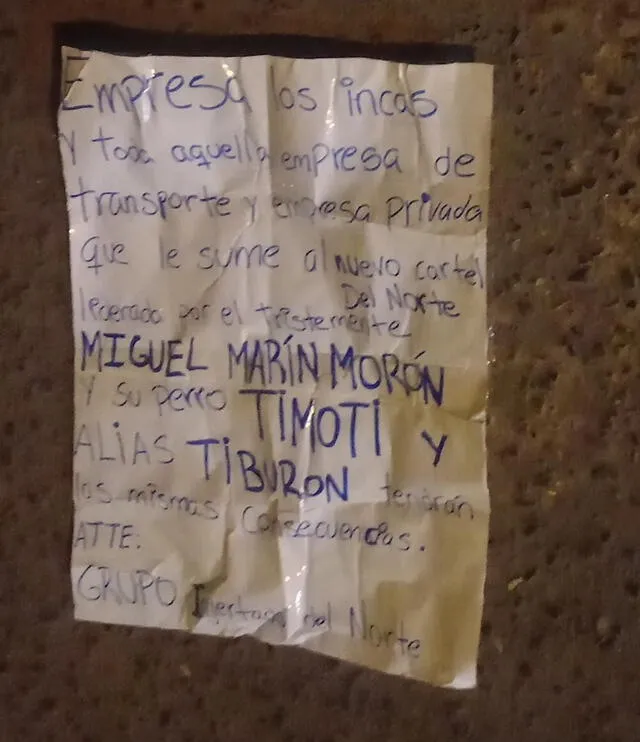 Empresa los incas
Y toda aquella empresa de
transporte y empresa privada
que le sume al nuevo cartel
Del Norte
lederado por el tristemente
MIGUEL MARÍN MORÓN
Y su perro TIMOTI y
ALIAS TIBURON tendran
las mismas consecuencias.
ATTE:
GRUPO del Norte